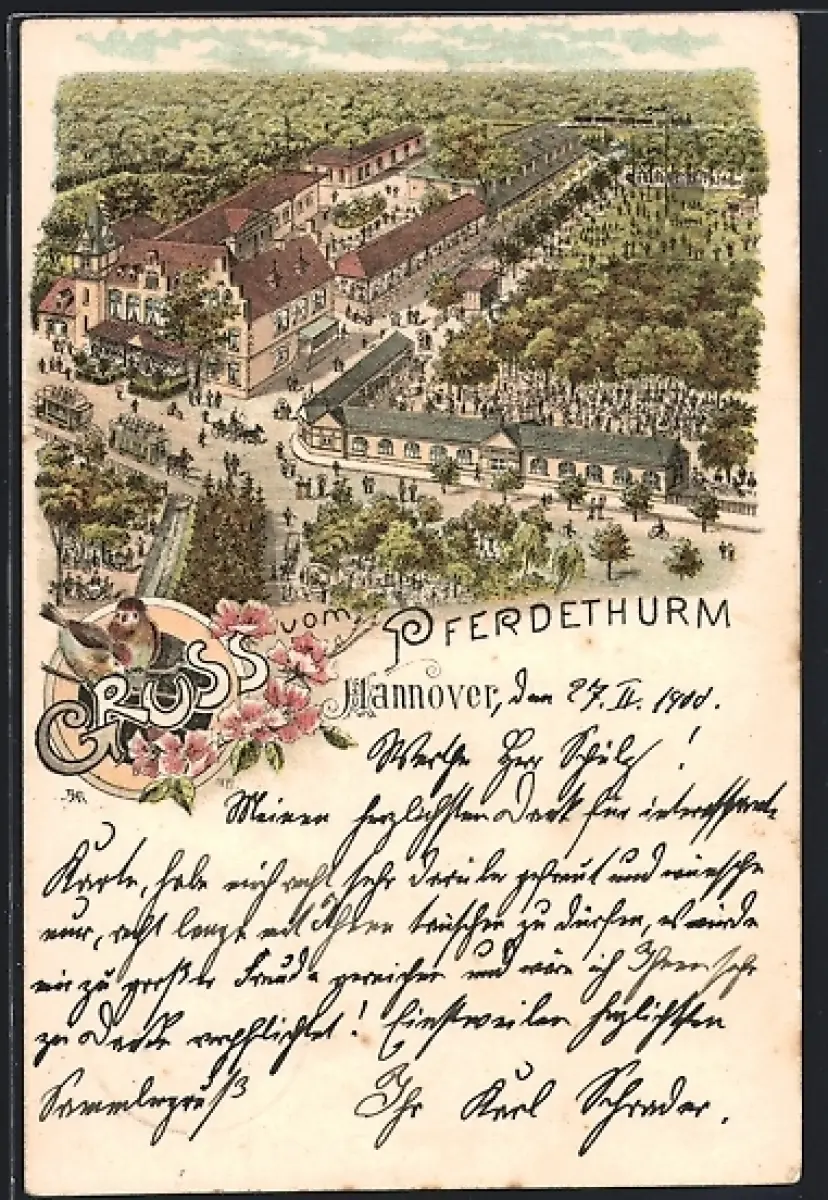 GRUSS vom PFERDETHURM
Hannover, den 27. II. 1900.
Werther Herr Schulz!
Meinen herzlichsten Dank für interessante
Karte, habe mich recht sehr darüber gefreut und wünsche
nur, recht lange mit Ihnen tauschen zu dürfen, es würde
mir zu großer Freude gereichen und wäre ich Ihnen sehr
zu Dank verpflichtet! Einstweilen herzlichsten
Sammlergruß Ihr Karl Schrader.